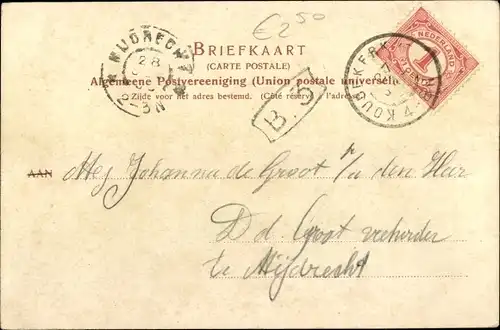 € 2 50
MIJDRECHT
28
BRIEFKAART
(CARTE POSTALE)
Algemeene Postvereeniging (Union postale universelle)
Zijde voor het adres bestemd. (Côté réservé à l'adresse)
KOUDEKERK
NEDERLAND
1
B. 3
AAN Mej Johanna de Groot p/a den Heer
D d Groot veehouder
te Mijdrecht